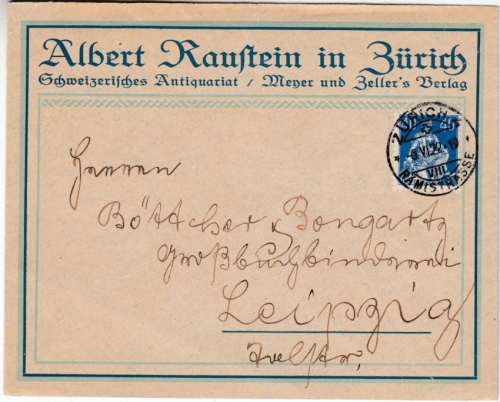 Albert Raustein in Zürich
Schweizerisches Antiquariat / Meyer und Zeller's Verlag
ZÜRICH
VI.22.-10
VIII
RÄMISTRASSE
Herren
Böttcher & Bongartz
Großbuchbinderei
Leipzig